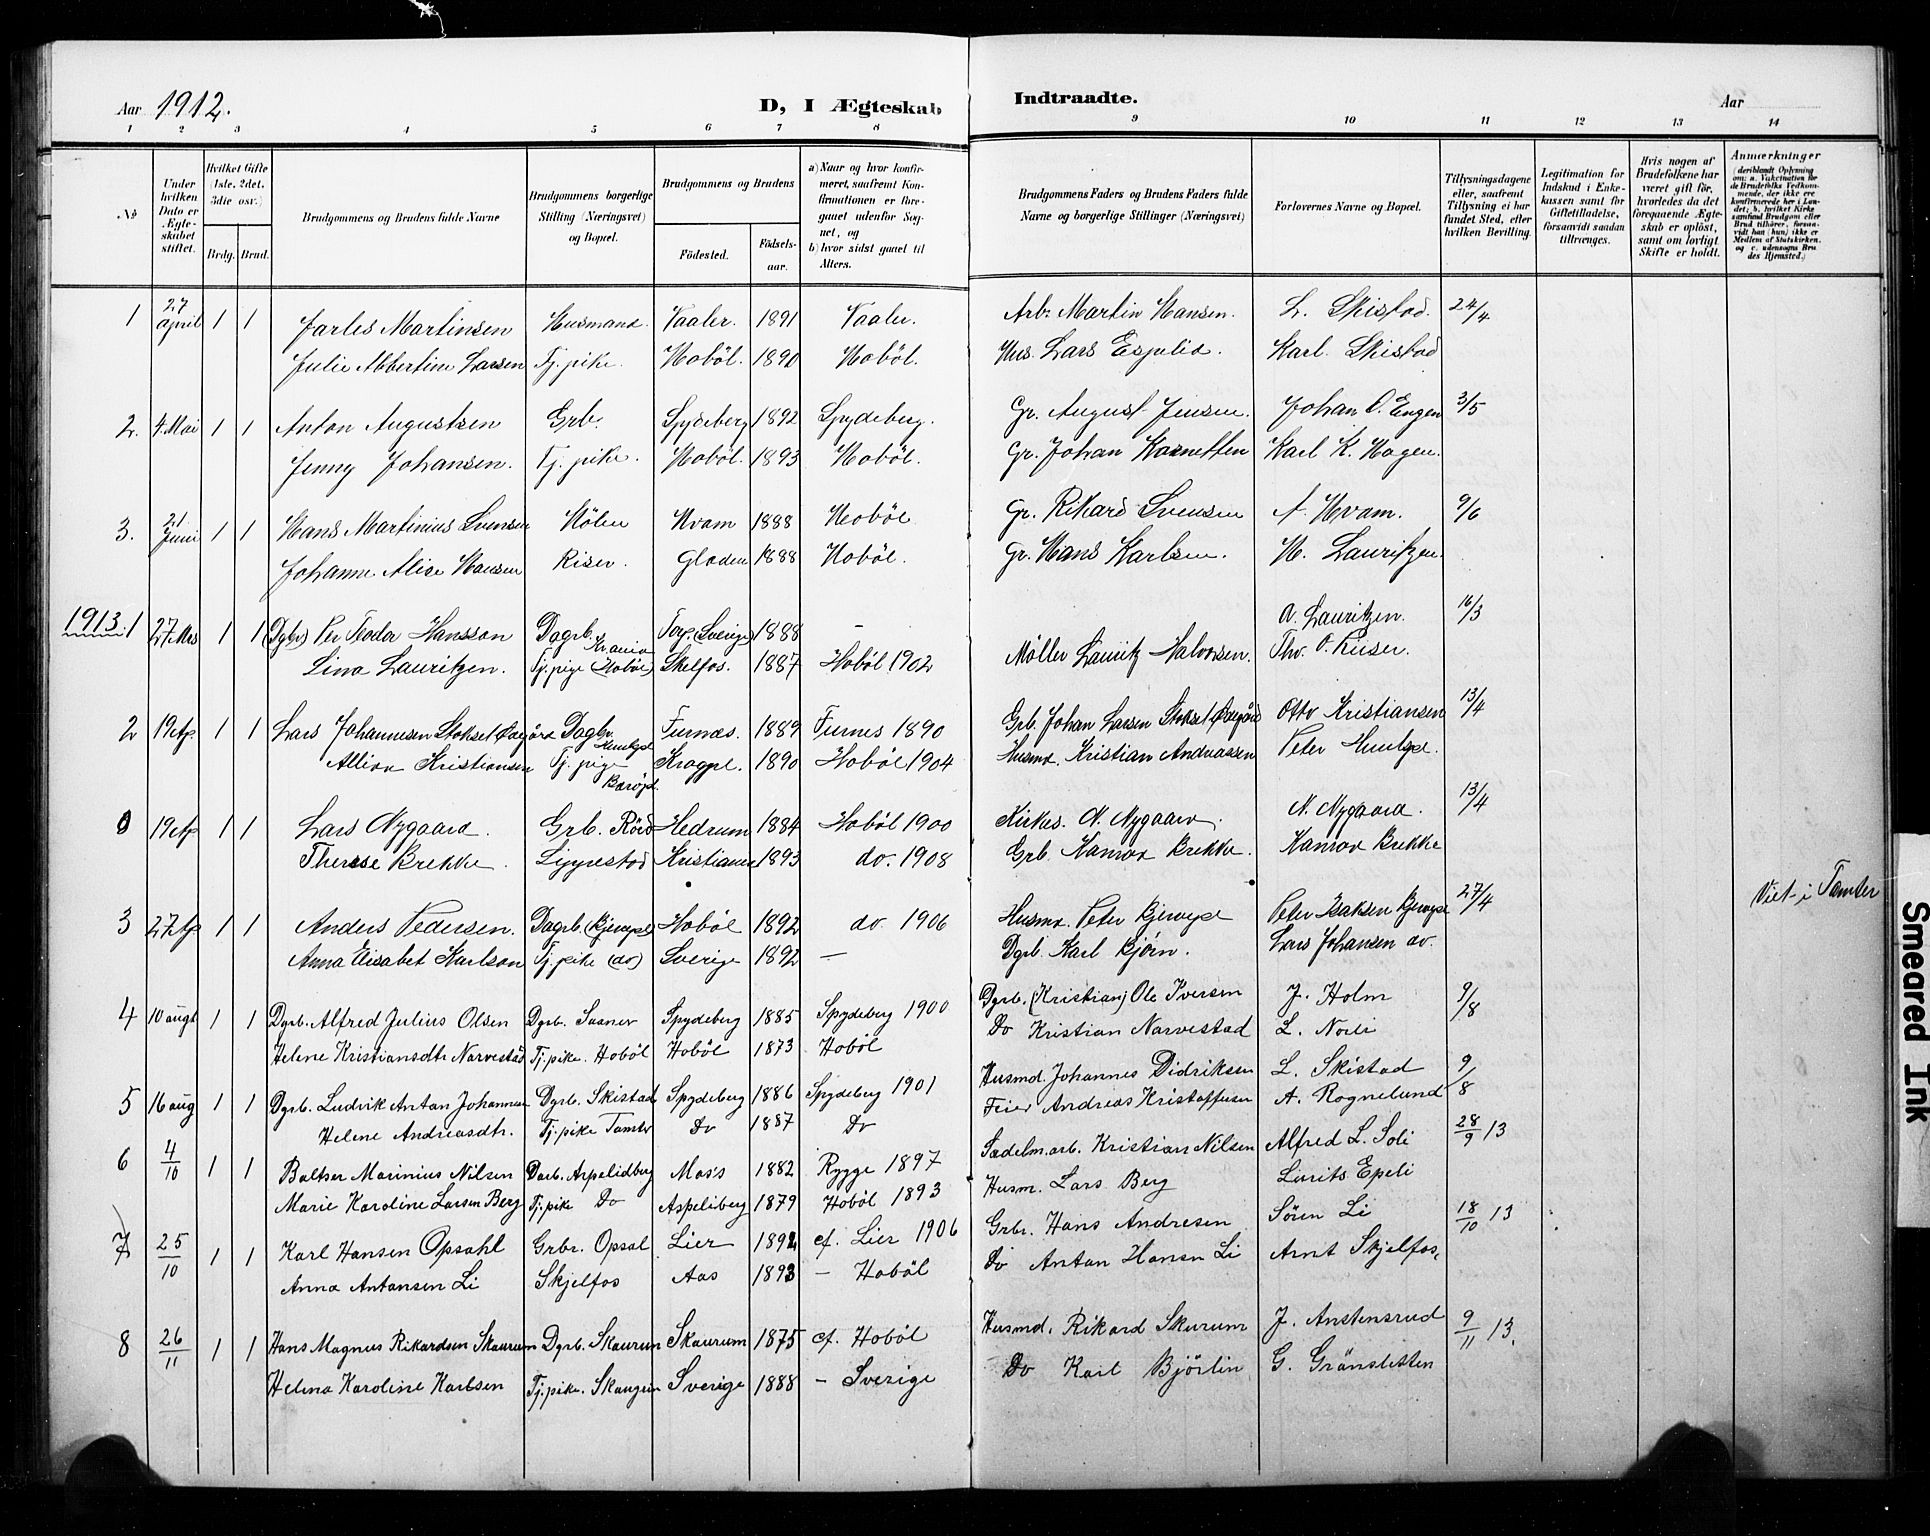 Aar 1912. D, I Ægteskab Indtraadte. Aar
1 2 3 4 5 6 7 8 9 10 11 12 13 14
No
Under hvilken Dato er Ægteskabet stiftet.
Hvilket Gifte (1ste, 2det, 3die osv.)
Brdg. Brud.
Brudgommens og Brudens fulde Navne
Brudgommens borgerlige Stilling (Næringsvei) og Bopæl.
Brudgommens og Brudens
Födested. Födselsaar.
a) Naar og hvor konfirmeret, saafremt Konfirmationen er foregaaet udenfor Sognet, og
b) hvor sidst gaaet til Alters.
Brudgommens Faders og Brudens Faders fulde Navne og borgerlige Stillinger (Næringsvei)
Forlovernes Navne og Bopæl.
Tillysningsdagene eller, saafremt Tillysning ei har fundet Sted, efter hvilken Bevilling.
Legitimation for Indskud i Enkekassen samt for Giftetilladelse, forsaavidt saadan tiltrænges.
Hvis nogen af Brudefolkene har været gift för, hvorledes da det foregaaende Ægteskab er oplöst, samt om lovligt Skifte er holdt.
Anmærkninger (deriblandt Oplysning om: a. Vakcination for de Brudefolks Vedkommende, der ikke ere konfirmerede her i Landet; b. hvilket Kirkesamfund Brudgom eller Brud tilhörer, forsaavidt han (hun) ikke er Medlem af Statskirken, og c. udensogns Brudes Hjemsted.)
1 27 april 1 1 Jarles Martinsen Husmand. Vaaler. 1891 Vaaler. Arb. Martin Hansen. L. Skistad. 24/4
Julie Albertine Larsen Tj. pike. Hoböl. 1890 Hoböl. Hus. Lars Espelid. Karl Skistad
2. 4. Mai 1 1 Anton Augustsen Grb. Spydeberg 1892 Spydeberg. Gr. August Jensen. Johan O. Engen 3/5
Jenny Johansen. Tj. pike. Hoböl. 1893 Hoböl. Gr. Johan Karl K. Hagen.
3. 21 Juni 1 1 Hans Martinius Svensen Kvam 1888 Hoböl Gr. Rikard Svensen A. Hvam. 9/6
Johanne Alise Hansen Riser. Gloden 1888 Hoböl. Gr. Hans Karlsen. H. Lauritzen.
1913. 1 27 Mrs 1 1 (Dgbr) Per Teodor Hansson Dagrb. Torp. (Sverige) 1888 – O. Lauritzen. 16/3
Lina Lauritzen. Tj. pige (Hoböl) Skelfos. 1887 Hoböl 1902 Möller Lauritz Halvorsen. Thv. O. Riiser.
2 19 Ap 1 1 Lars Johannesen Stokset Dagb. Furnæs. 1889 Furnes 1890 Grb. Johan Larsen Stokset Otto Kristiansen 13/4
Kristiansen Tj. pige 1890 Hoböl 1904 Husmd. Kristian Andreassen Peter
19 Ap 1 1 Lars Nygaard. Grb. Hedrum 1884 Hoböl 1900 Kirkes. N. Nygaard. N. Nygaard. 13/4
Therese Brekke. Kristiania 1893 do. 1908 Grb. Hansov Brekke. Hansov Brekke
3 27 Ap 1 1 Anders Pedersen. Dagrb. (Kjervgsl) Hoböl 1892 do. 1906 Husmd. Peter Kjervgsl Peter Isaksen Kjervgsl 27/4 Viet i Tomter
Anna Elisabet Karlson Tj. pike (do) Sverige 1892 — Dgrb. Karl Bjørn. Lars Johansen do.
4 10 augst 1 1 Dgrb. Alfred Julius Olsen Dgrb. Spydeberg 1885 Spydeberg 1900 Dgrb. (Kristian) Ole Iversen J. Holm 9/8
Helene Kristiansdtr. Narvestad Tj. pike. Hoböl Hoböl 1873 Hoböl Do Kristian Narvestad L. Noeli
5 16 aug 1 1 Dgrb. Ludvik Anton Johannesen Dgrb. Skistad Spydeberg 1886 Spydeberg 1901 Husmd. Johannes Didriksen L. Skistad 9/8
Helene Andreasdtr. Tj. pike Tomter Do 1887 Do Feier Andreas Kristoffersen A. Rognelund
6 4/10 1 1 Baltser Marinius Nilsen Darb. Aspelidberg Moss 1882 Rygge 1897 Sadelm. arb. Kristian Nilsen Alfred L. Soli 28/9 13
Marie Karoline Larsen Berg Tj. pike Do Aspeliberg 1879 Hoböl 1893 Husm. Lars Berg Lurits Epeli
7 25/10 1 1 Karl Hansen Opsahl Grbr. Opsal Lier 1892 cf. Lier 1906 Grbr. Hans Andresen Sören Li 18/10 13
Anna Antonsen Li Skjelfos Aas 1893 – Hoböl Do Anton Hansn Li Arnt Skjelfos,
8 26/11 1 1 Hans Magnus Rikardsen Skaurum Dgrb. Skaurum Skaurum 1875 cf. Hoböl Husmd. Rikard Skurum J. Anstensrud 9/11 13.
Helma Karoline Karlsen Tj. pike. Sverige 1888 – Sverige Do Karl Björlin G. Gränsletten
Smeared Ink